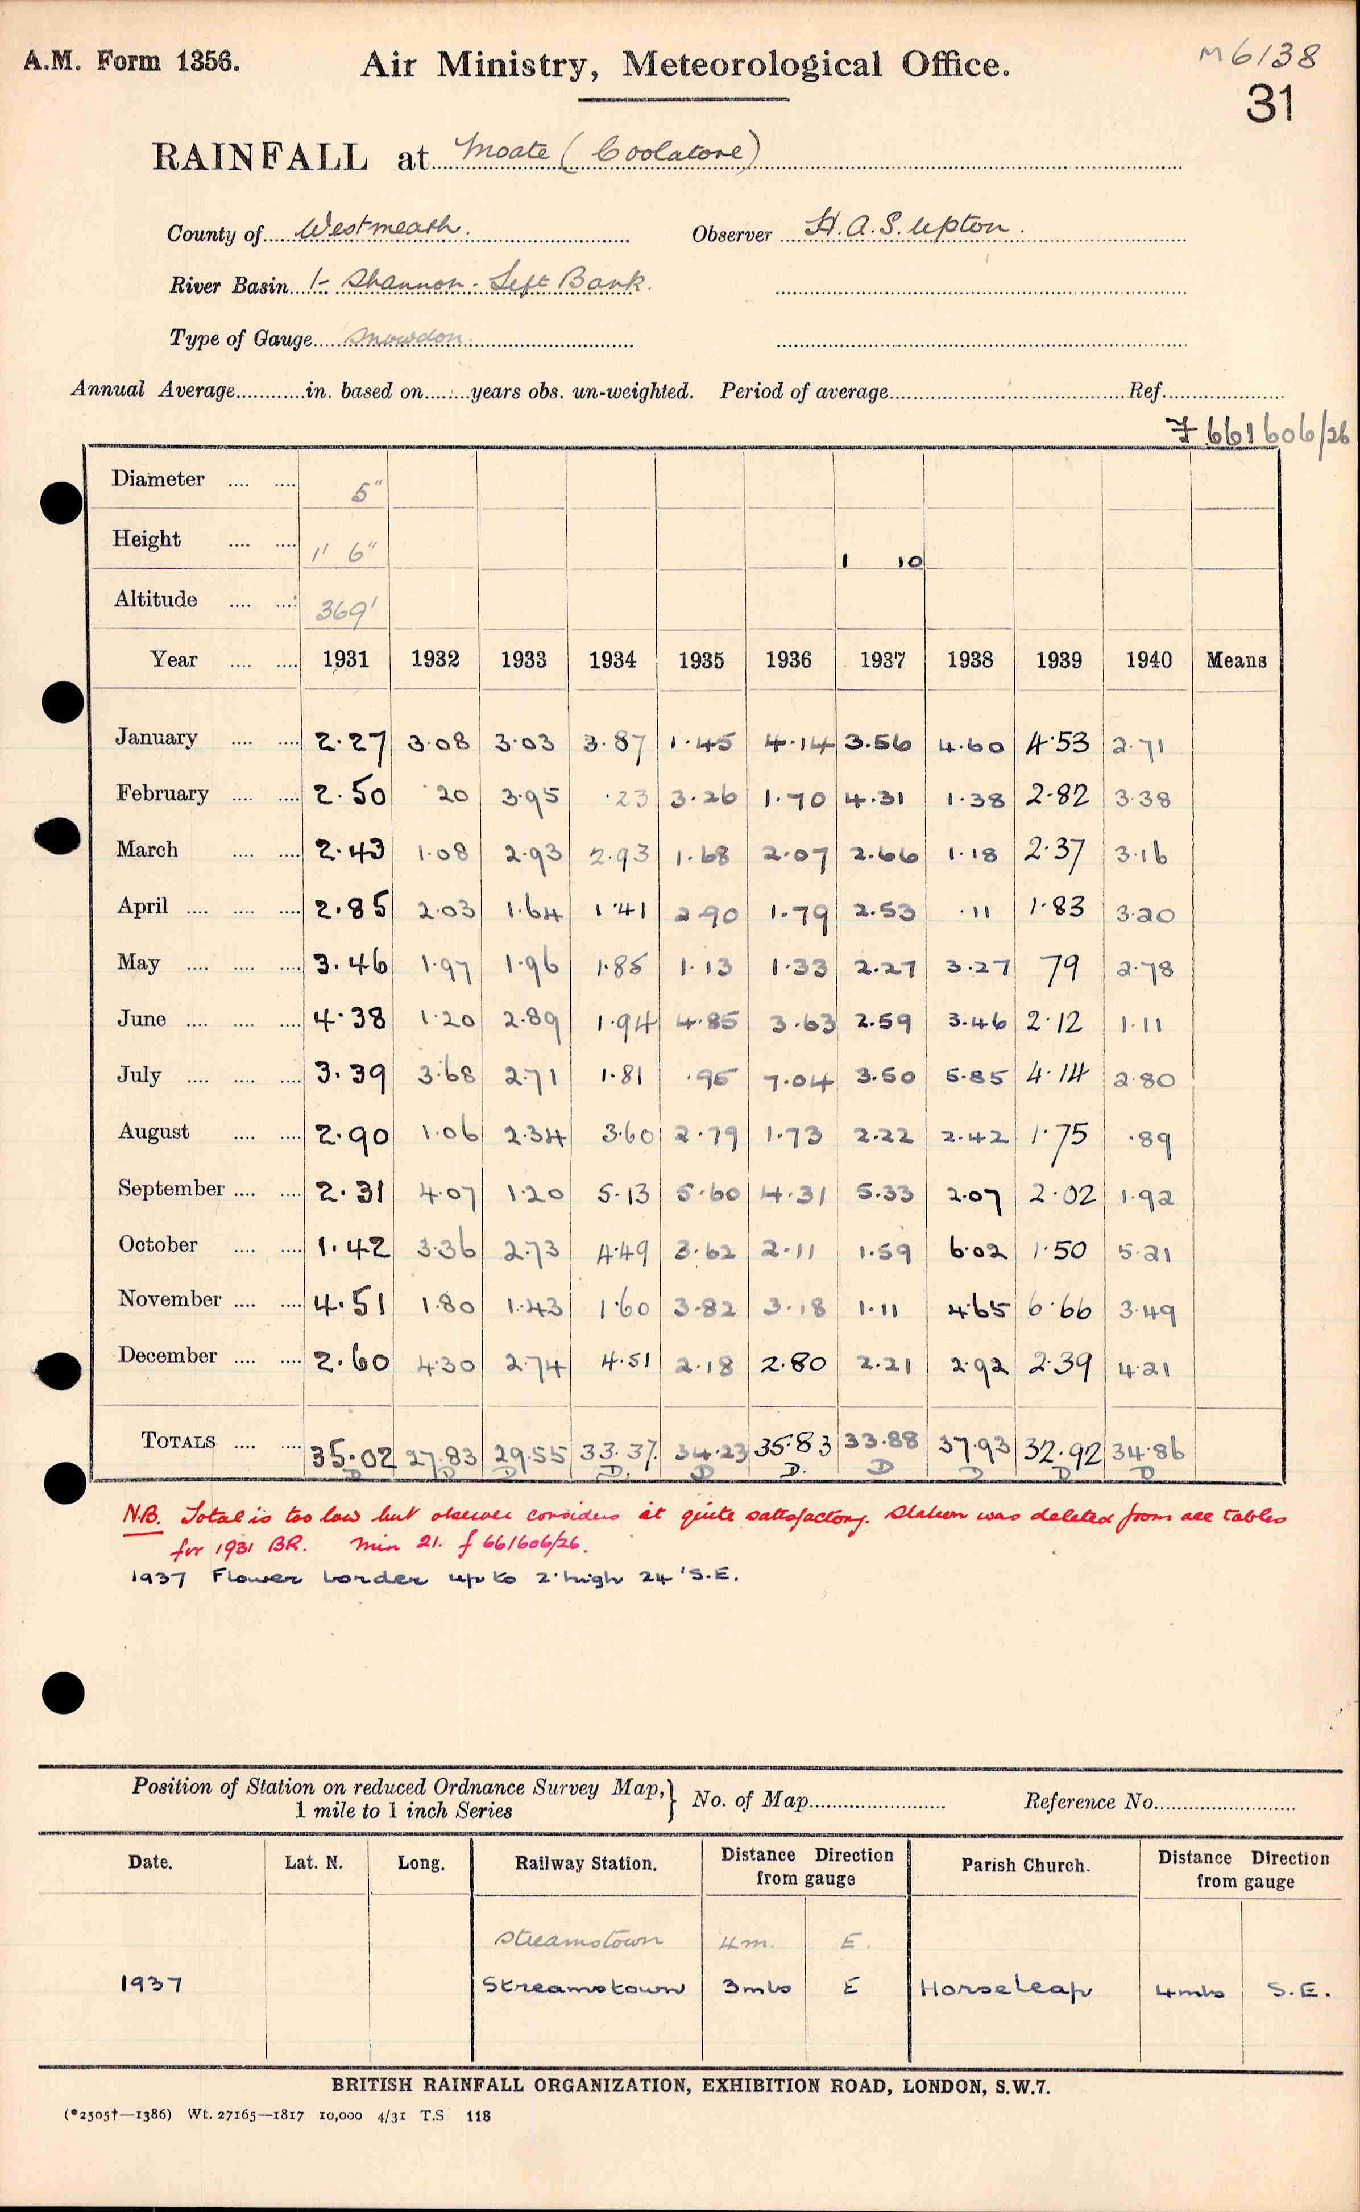 A.M. Form 1356.
Air Ministry, Meteorological Office.
M6138
31
RAINFALL at Moate (Coolatore)
County of Westmeath. Observer H.A.S. Upton.
River Basin 1- Shannon - Left Bank.
Type of Gauge Snowdon
Annual Average in. based on years obs. un-weighted. Period of average Ref.
F 661606/26
Diameter 5"
Height 1' 6" 1 10
Altitude 369'
Year 1931 1932 1933 1934 1935 1936 1937 1938 1939 1940 Means
January 2.27 3.08 3.03 3.87 1.45 4.14 3.56 4.60 4.53 2.71
February 2.50 .20 3.95 .23 3.26 1.70 4.31 1.38 2.82 3.38
March 2.43 1.08 2.93 2.93 1.68 2.07 2.66 1.18 2.37 3.16
April 2.85 2.03 1.64 1.41 2.90 1.79 2.53 .11 1.83 3.20
May 3.46 1.97 1.96 1.85 1.13 1.33 2.27 3.27 79 2.78
June 4.38 1.20 2.89 1.94 4.85 3.63 2.59 3.46 2.12 1.11
July 3.39 3.68 2.71 1.81 .95 7.04 3.50 5.85 4.14 2.80
August 2.90 1.06 2.34 3.60 2.79 1.73 2.22 2.42 1.75 .89
September 2.31 4.07 1.20 5.13 5.60 4.31 5.33 2.07 2.02 1.92
October 1.42 3.36 2.73 4.49 3.62 2.11 1.59 6.02 1.50 5.21
November 4.51 1.80 1.43 1.60 3.82 3.18 1.11 4.65 6.66 3.49
December 2.60 4.30 2.74 4.51 2.18 2.80 2.21 2.92 2.39 4.21
TOTALS 35.02 27.83 29.55 33.37 34.23 35.83 33.88 37.93 32.92 34.86
D D D D. D D. D D D D
N.B. Total is too low but observer considers it quite satisfactory. Station was deleted from all tables
for 1931 BR. Min 21. f 661606/26.
1937 Flower border up to 2' high 24' S.E.
Position of Station on reduced Ordnance Survey Map, No. of Map Reference No.
1 mile to 1 inch Series
Date. Lat. N. Long. Railway Station. Distance Direction from gauge Parish Church. Distance Direction from gauge
Streamstown 4m. E.
1937 Streamstown 3mls E Horseleap 4mls S.E.
BRITISH RAINFALL ORGANIZATION, EXHIBITION ROAD, LONDON, S.W.7.
(*2505†—1386) Wt. 27165—1817 10,000 4/31 T.S 118